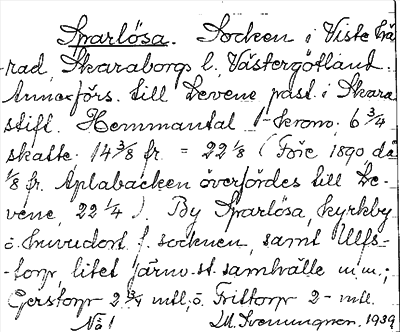 Sparlösa. Socken i Viste hä-
rad, Skaraborgs l. Västergötland.
Annexförs. till Levene past. i Skara
stift. Hemmantal 1- krono, 6 3/4
skatte, 14 3/8 fr. = 22 1/8 (Före 1890, då
1/8 fr. Aplabacken överfördes till Le-
vene, 22 1/4). By Sparlösa, kyrkby
o. huvudort f. socknen, samt Ulfs-
-torp, litet järnv.st.samhälle m.m.;
Gerstorp 2 3/4 mtl, o. Frittorp 2- mtl.
No 1 M. Svenungson. 1939